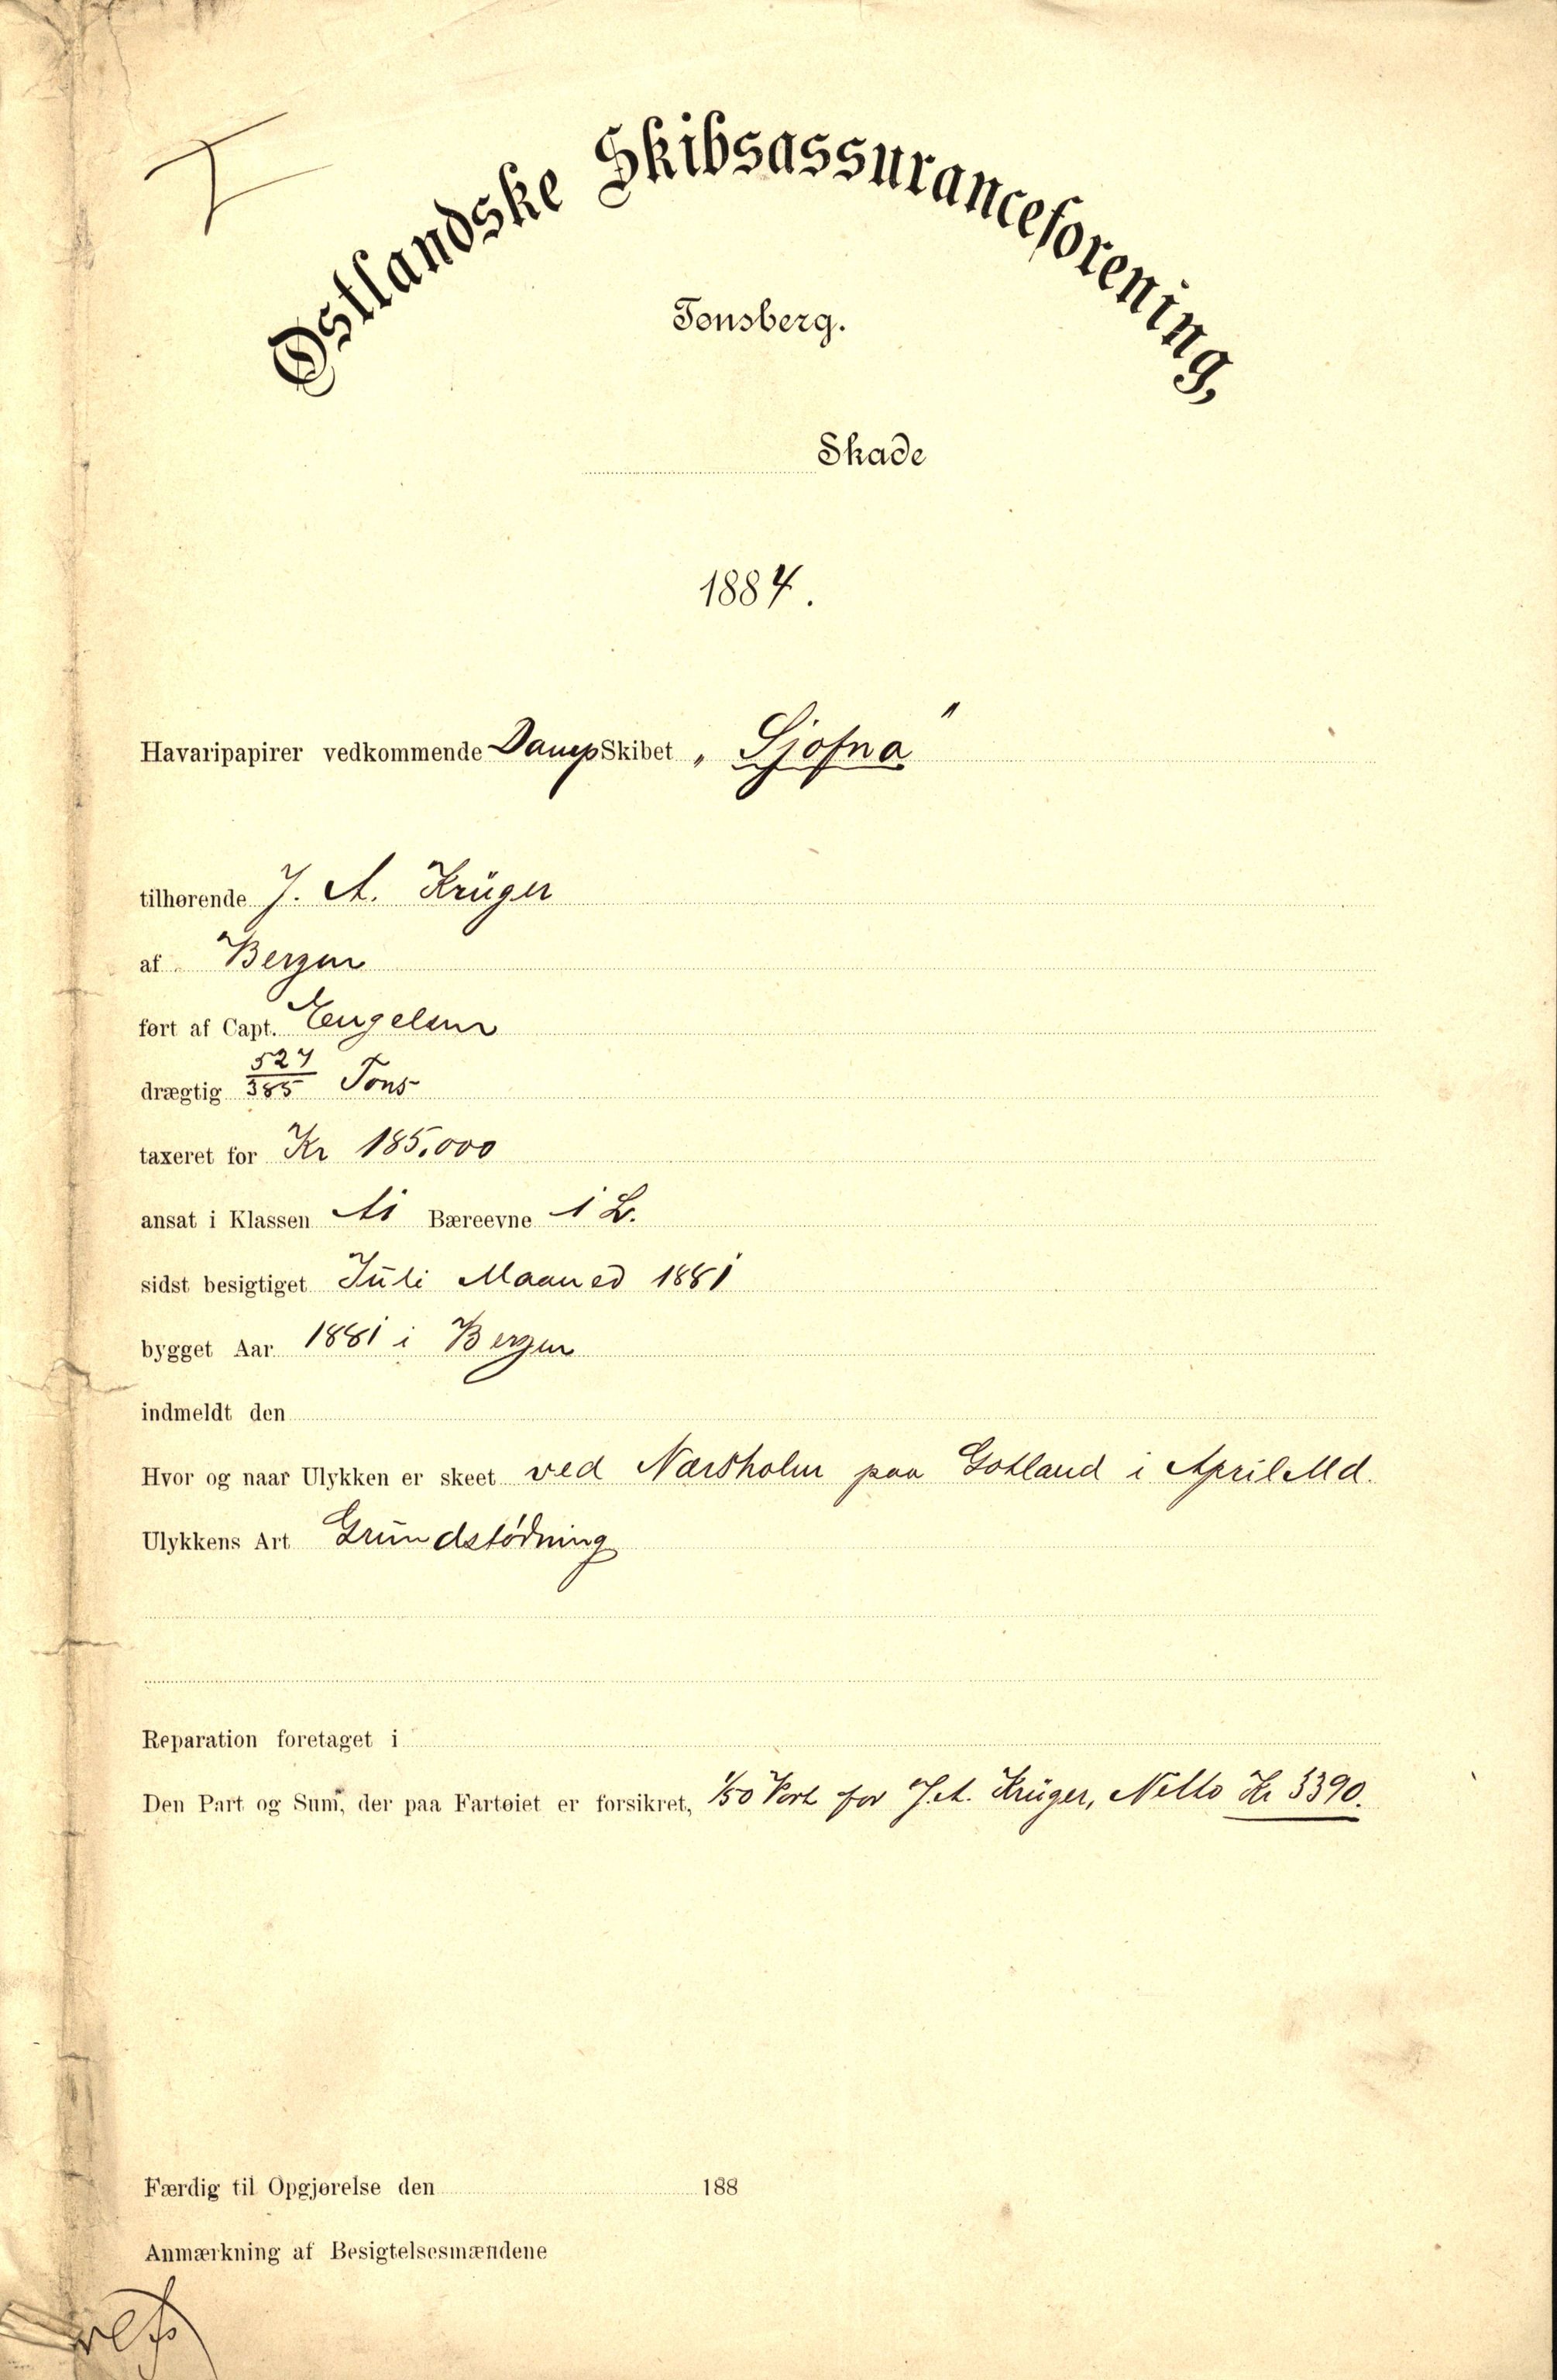 I
Østlandske Skibsassuranceforening,
Tønsberg.
Skade
1884.
Havaripapirer vedkommende DampSkibet „Sjofna"
tilhørende J. A. Krüger
af Bergen
ført af Capt. Engelsen
drægtig 527/385 Tons
taxeret for Kr 185.000
ansat i Klassen A1 Bæreevne 1 L.
sidst besigtiget Juli Maaned 1881
bygget Aar 1881 i Bergen
indmeldt den
Hvor og naar Ulykken er skeet ved Närsholm paa Gotland i April Md.
Ulykkens Art Grundstødning
Reparation foretaget i
Den Part og Sum, der paa Fartøiet er forsikret, 1/50 Part for J. A. Krüger, Netto Kr 3390.
Færdig til Opgjørelse den 188
Anmærkning af Besigtelsesmændene